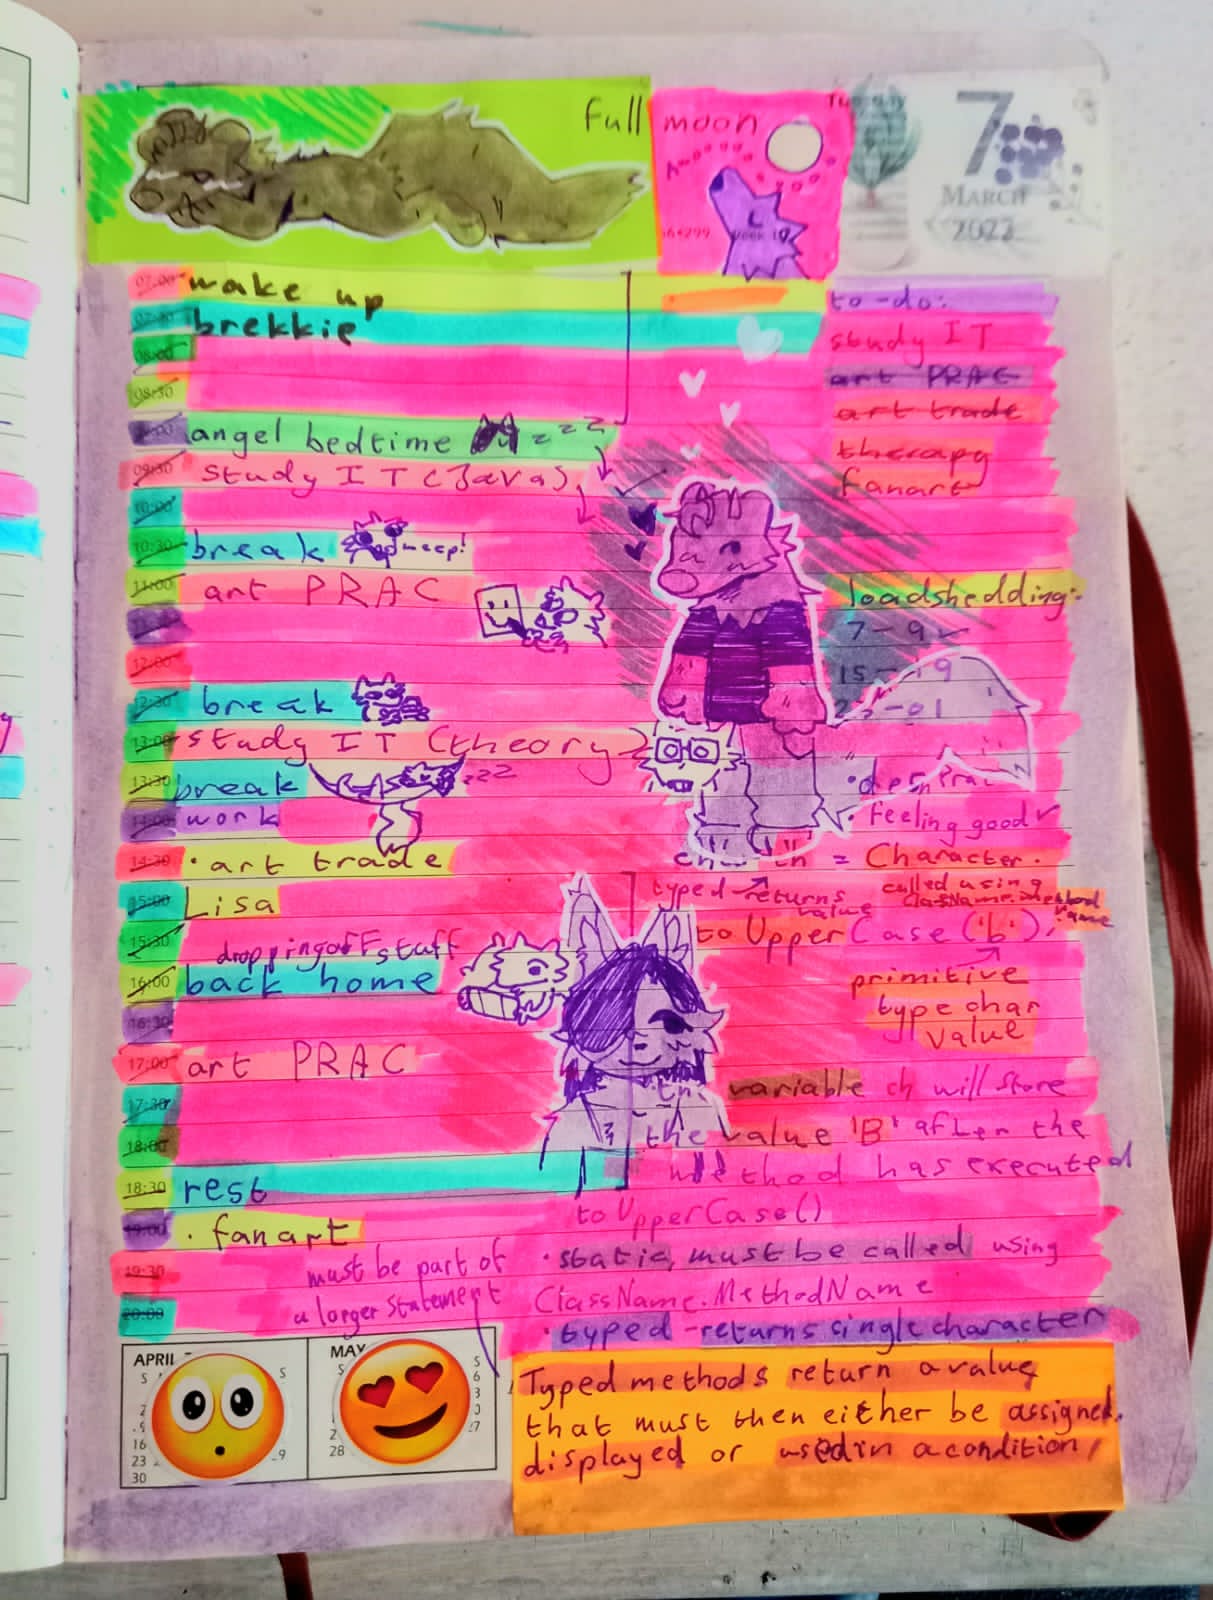 Full moon
Tuesday
7
MARCH
Awooooo
07:00 wake up
07:30 brekkie
08:00
08:30
angel bedtime zzz
09:30 study IT (Java)
10:00
10:30 break meep!
11:00 art PRAC
12:00
12:30 break
13:00 study IT (theory)
13:30 break zzz
14:00 work
14:30 · art trade
15:00 Lisa
15:30 dropping off stuff
16:00 back home
16:30
17:00 art PRAC
17:30
18:00
18:30 rest
19:00 · fanart
19:30
20:00
must be part of
a larger statement
to-do:
study IT
art PRAC
art trade
therapy
fanart
loadshedding:
7-9
15-19
-01
· feeling good
= Character.
typed returns value
called using
ClassName.method name
toUpperCase('b');
primitive
type char
value
variable ch will store
the value 'B' after the
method has executed
toUpperCase()
· static, must be called using
ClassName.MethodName
· typed - returns single character
Typed methods return a value
that must then either be assigned,
displayed or used in a condition
APRIL
S
S
16
23
30
MAY
S
S
28